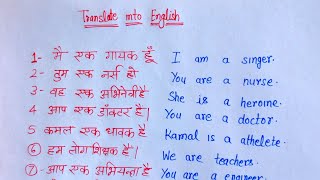 Translate into English
1- मै एक गायक हूँ I am a singer.
2- तुम एक नर्स हो You are a nurse.
3- वह एक अभिनेत्री है She is a heroine.
4 आप एक डॉक्टर है। You are a doctor.
5 कमल एक धावक है Kamal is a athelete.
6 हम लोग शिक्षक है। We are teachers.
7- आप एक अभियन्ता है You are a engineer.